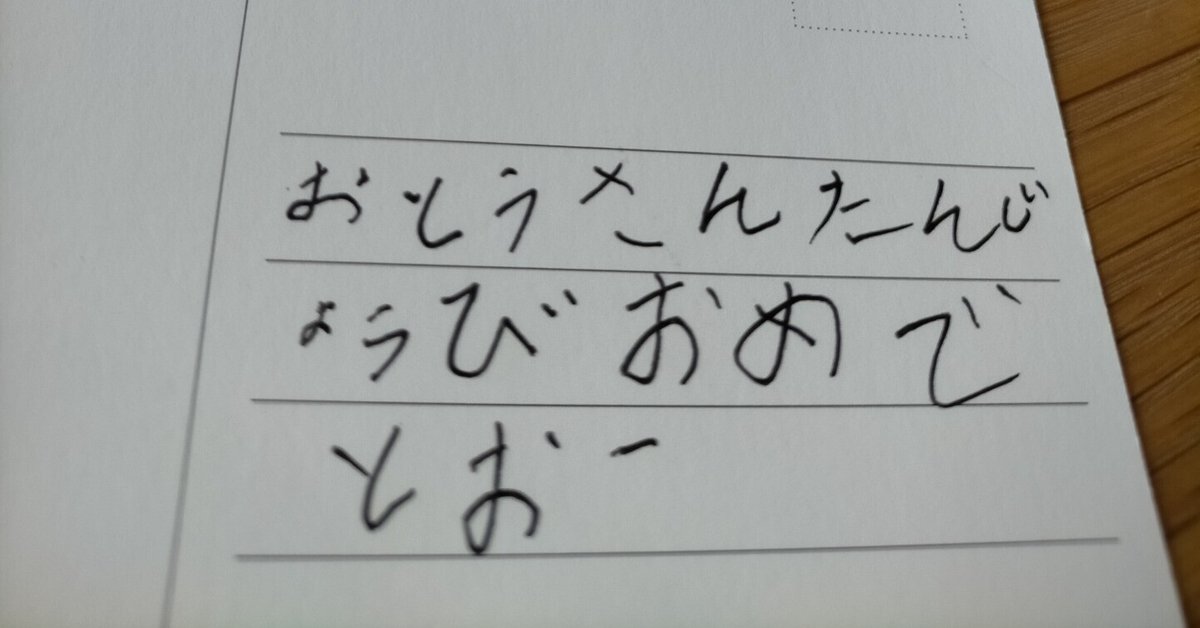 おとうさんたんじ
ょうびおめで
とおー